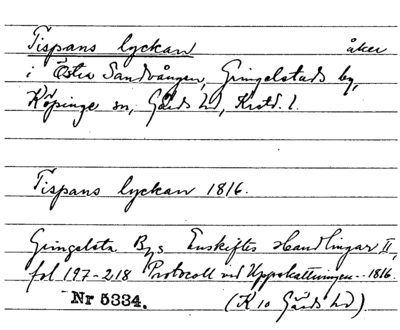 Tispans lyckan åker
i Östra Sandvången, Gringelstads by,
Köpinge sn, Gärds hd, Krstd. l.
Tispans lyckan 1816.
Gringelsta Bys Enskiftes Handlingar II,
fol 197-218 Protocoll vid Uppskattningen -- 1816.
Nr 5334. (K 10 Gärds hd).